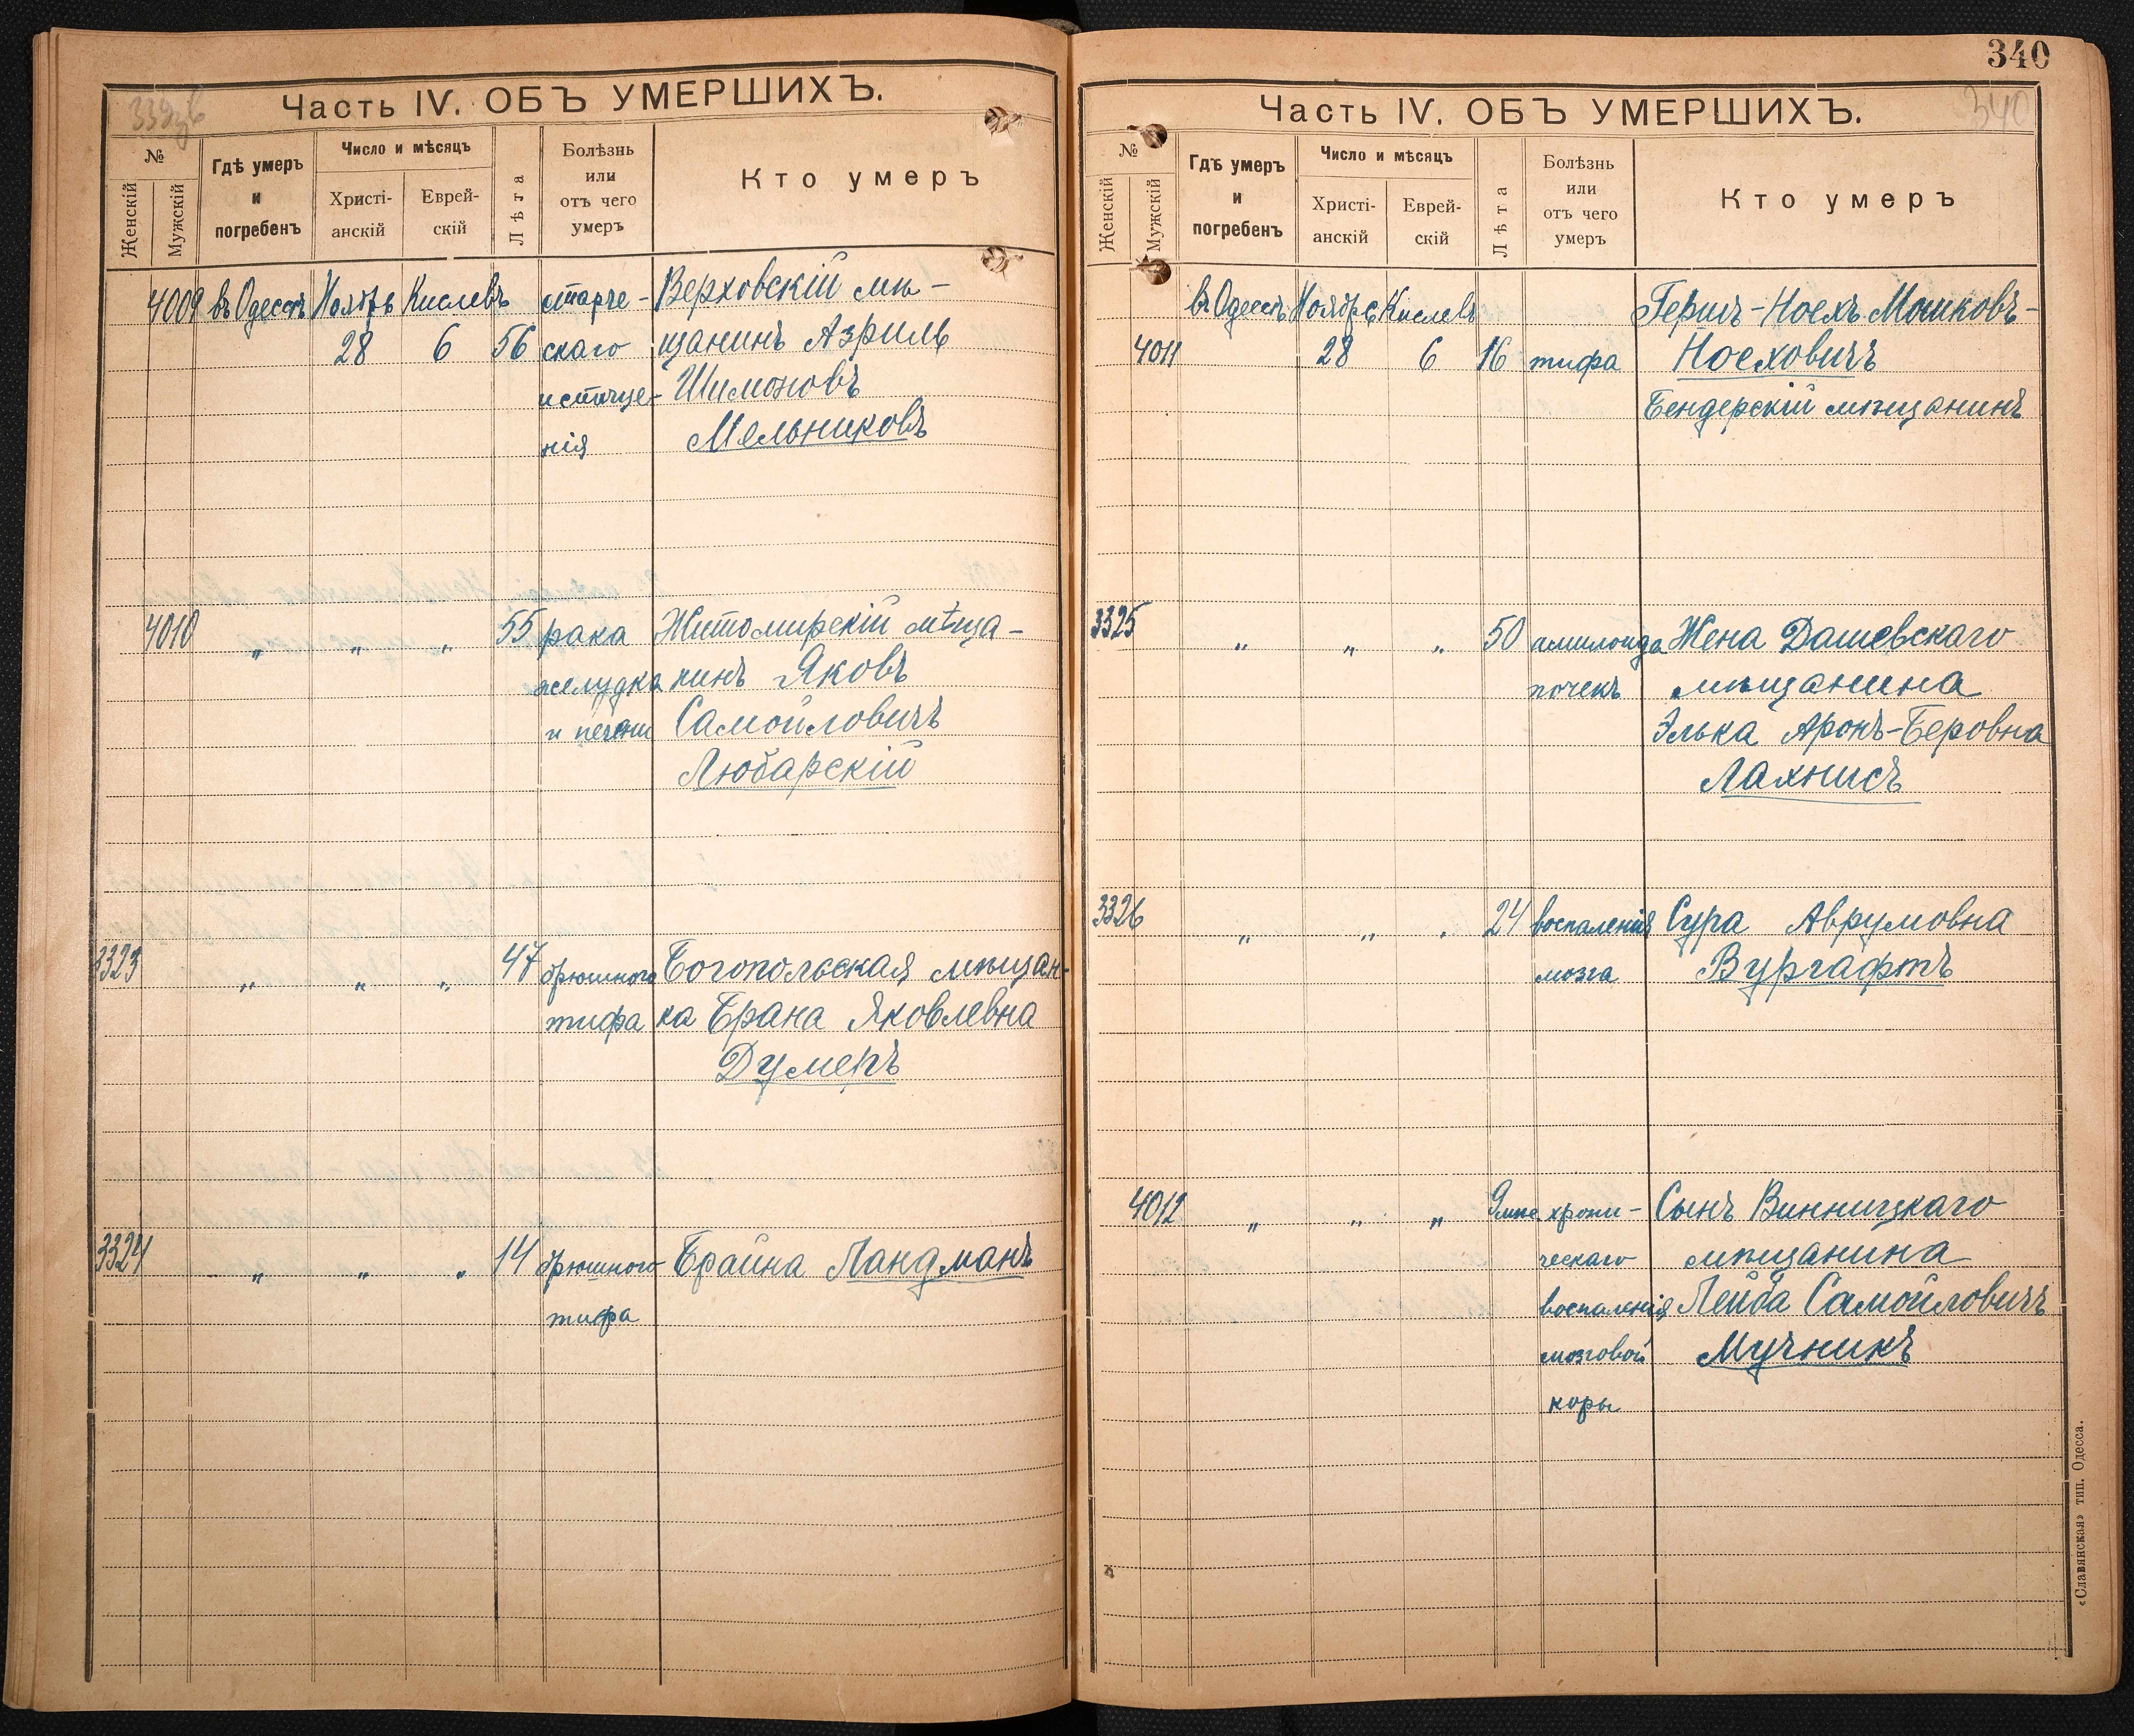 339 об
Часть IV. ОБЪ УМЕРШИХЪ.
№
Женскій
Мужскій
Гдѣ умеръ
и
погребенъ
Число и мѣсяцъ
Христі-
анскій
Еврей-
скій
Лѣта
Болѣзнь
или
отъ чего
умеръ
Кто умеръ
4009 въ Одессѣ Ноябрь Кислевъ старче- Верховскій мѣ-
28 6 56 скаго щанинъ Азриль
истоще- Шимоновъ
нія Мельниковъ
4010 „ „ „ 55 рака Житомирскій мѣща-
желудка нинъ Яковъ
и печени Самойловичъ
Любарскій
3323 „ „ „ 47 брюшного Богопольская мѣщан-
тифа ка Брана Яковлевна
Думеръ
3324 „ „ „ 14 брюшного Брайна Ландманъ
тифа
340
340
Часть IV. ОБЪ УМЕРШИХЪ.
№
Женскій
Мужскій
Гдѣ умеръ
и
погребенъ
Число и мѣсяцъ
Христі-
анскій
Еврей-
скій
Лѣта
Болѣзнь
или
отъ чего
умеръ
Кто умеръ
въ Одессѣ Ноябрь Кислевъ Гершъ-Ноехъ Мошковъ-
4011 28 6 16 тифа Ноеховичъ
Бендерскій мѣщанинъ
3325 „ „ „ 50 амилоида Жена Дашевскаго
почекъ мѣщанина
Элька Аронъ-Беровна
Лахнисъ
3326 „ „ „ 24 воспаленія Сура Аврумовна
мозга Вургафтъ
4012 „ „ „ 9 мѣс. хрони- Сынъ Винницкаго
ческаго мѣщанина
воспаленія Лейба Самойловичъ
мозговой Мучникъ
коры
«Славянская» тип. Одесса.